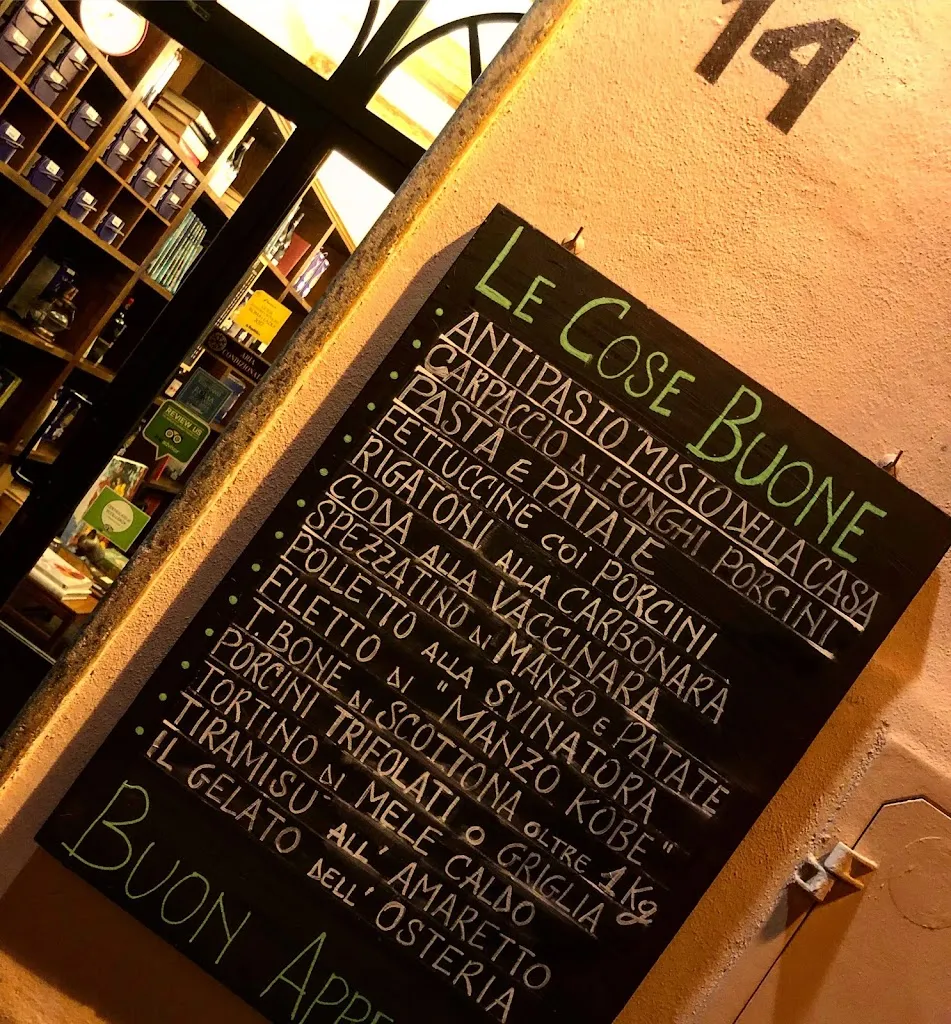 14
LE COSE BUONE
• ANTIPASTO MISTO DELLA CASA
• CARPACCIO DI FUNGHI PORCINI
• PASTA E PATATE
• FETTUCCINE COI PORCINI
• RIGATONI ALLA CARBONARA
• CODA ALLA VACCINARA
• SPEZZATINO DI MANZO E PATATE
• POLLETTO ALLA SVINATORA
• FILETTO DI "MANZO KOBE"
• T.BONE DI SCOTTONA OLTRE 1Kg
• PORCINI TRIFOLATI O GRIGLIA
• TORTINO DI MELE CALDO
• TIRAMISU' ALL'AMARETTO
• IL GELATO DELL'OSTERIA
BUON APPE
ARIA
CONDIZIONATA
REVIEW US